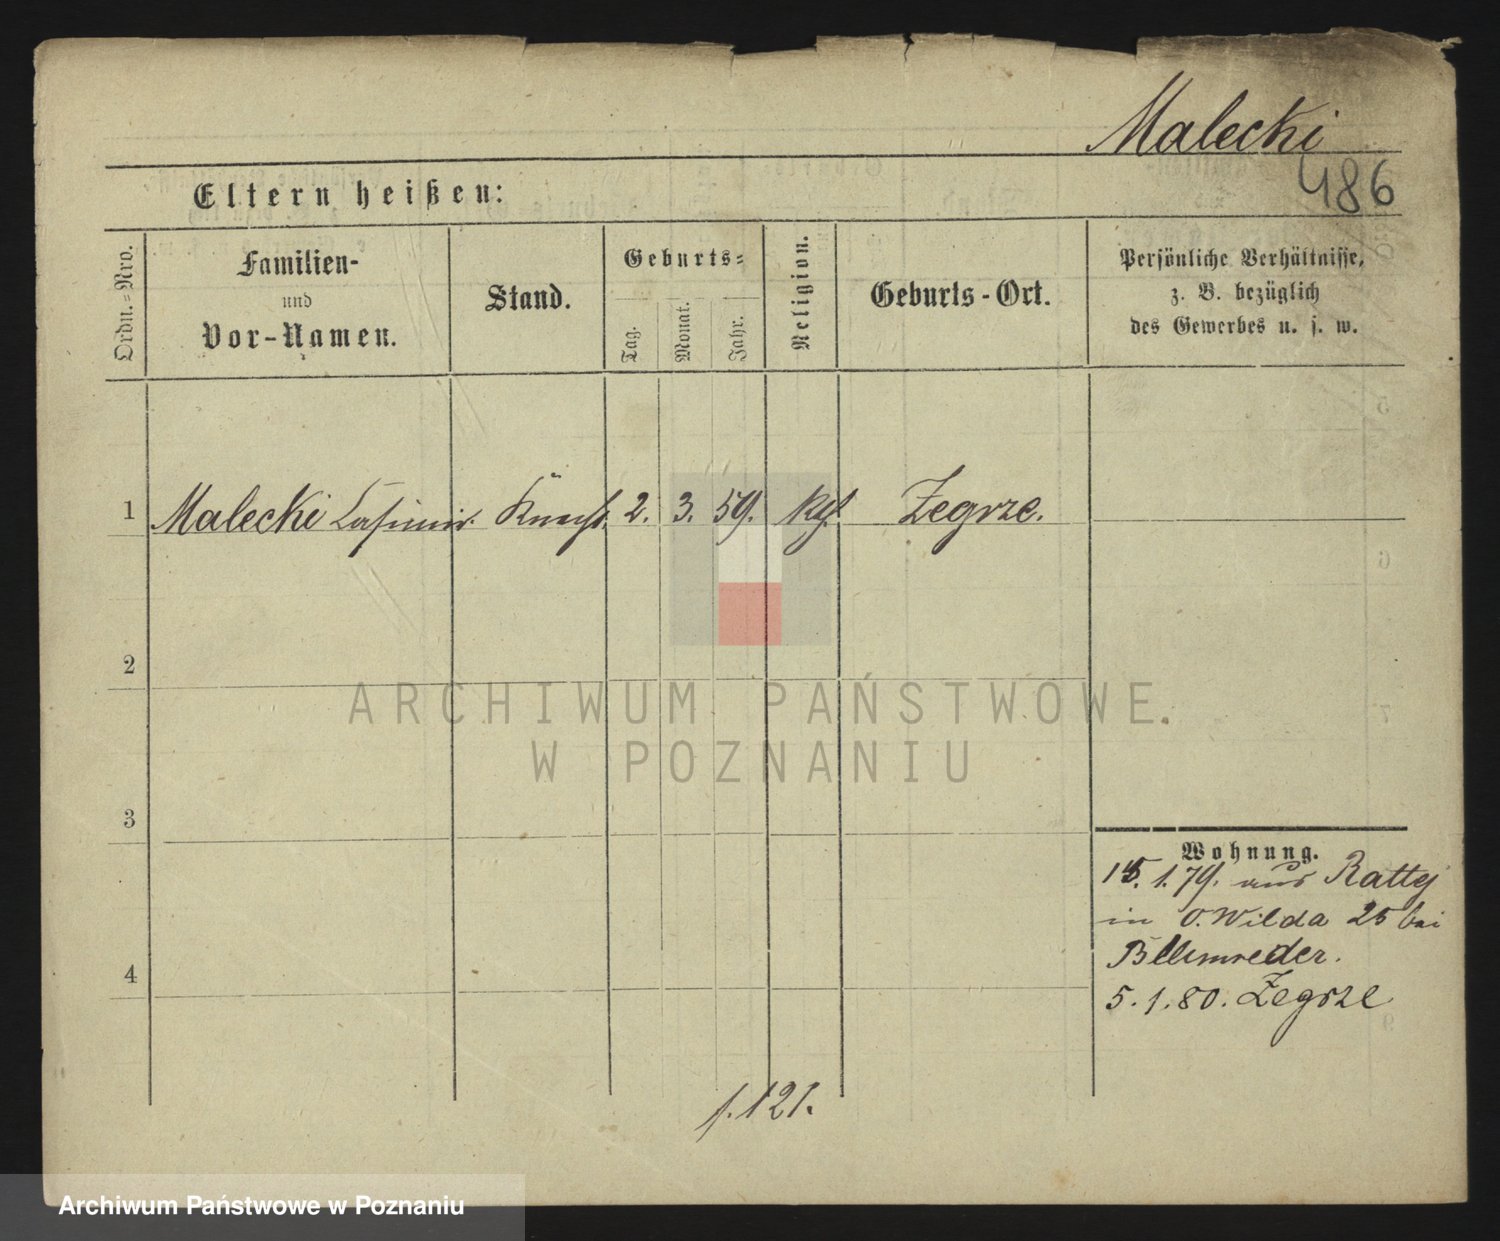 Malecki
486
Eltern heißen:
Ordn.=Nro.
Familien-
und
Vor-Namen.
Stand.
Geburts=
Tag.
Monat.
Jahr.
Religion.
Geburts-Ort.
Persönliche Verhältnisse,
z. B. bezüglich
des Gewerbes u. s. w.
1 Malecki Casimir. Knecht. 2. 3. 59. kath. Zegrze.
2
3
4
ARCHIWUM PAŃSTWOWE
W POZNANIU
Wohnung.
15. 1. 79. aus Rattaj
in O. Wilda 25 bei
5. 1. 80. Zegrze
f. 121.
Archiwum Państwowe w Poznaniu